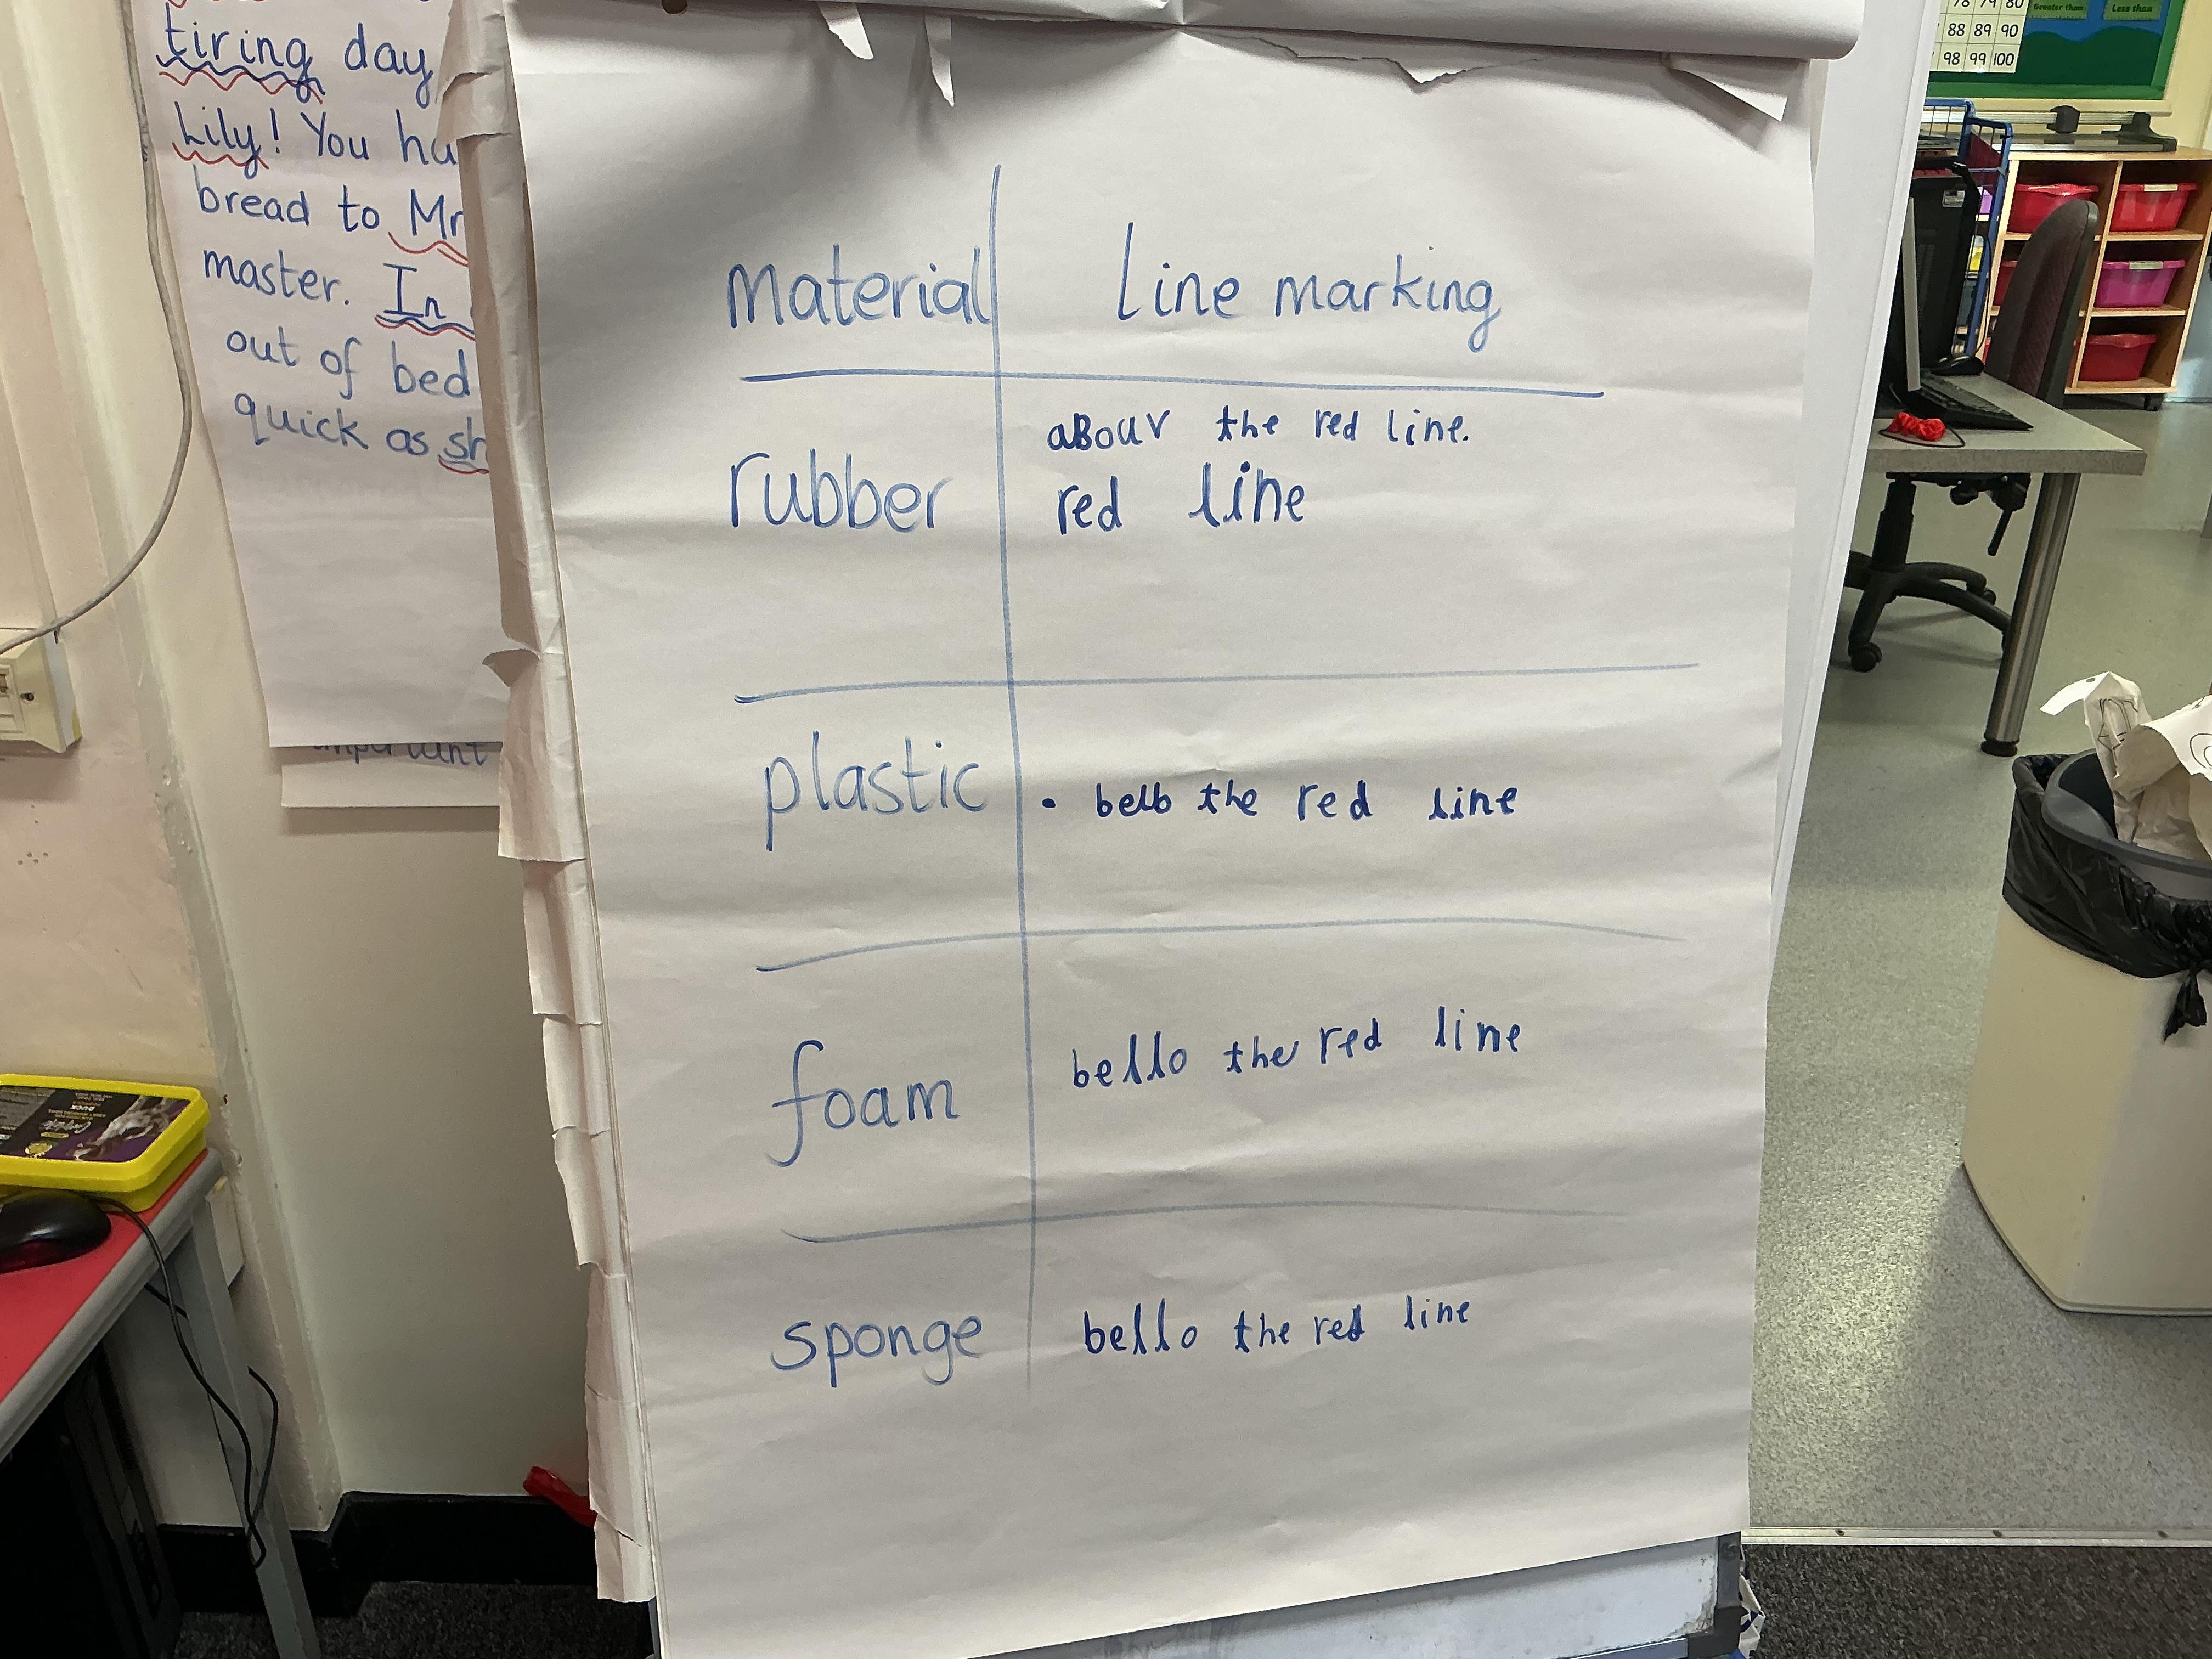 tiring day
Lily! You ha
bread to Mr
master. In
out of bed
quick as sh
important
material Line marking
aBouv the red line.
rubber red line
plastic • bello the red line
foam bello the red line
sponge bello the red line
78 79 80
88 89 90
98 99 100
Greater than Less than
DUCK